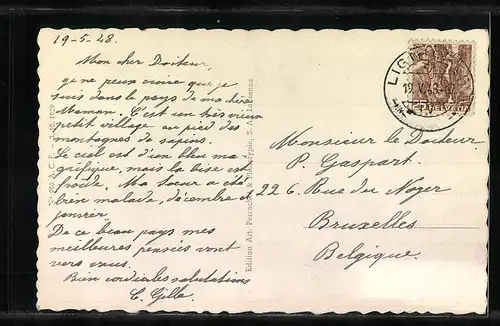 19-5-48.
Mon cher Docteur,
je ne peux croire que je
suis dans le pays de ma chère
Maman. C'est un très vieux
petit village au pied des
montagnes de sapins.
Le ciel est d'un bleu ma-
gnifique, mais la bise est
froide. Ma sœur a été
bien malade, décembre et
janvier.
De ce beau pays mes
meilleures pensées vont
vers vous.
Bien cordiales salutations
C. Gille.
Edition Art. Perrochet S. A. Lausanne
HELVETIA
Monsieur le Docteur
P. Gaspart.
226. Rue du Noyer
Bruxelles
Belgique.